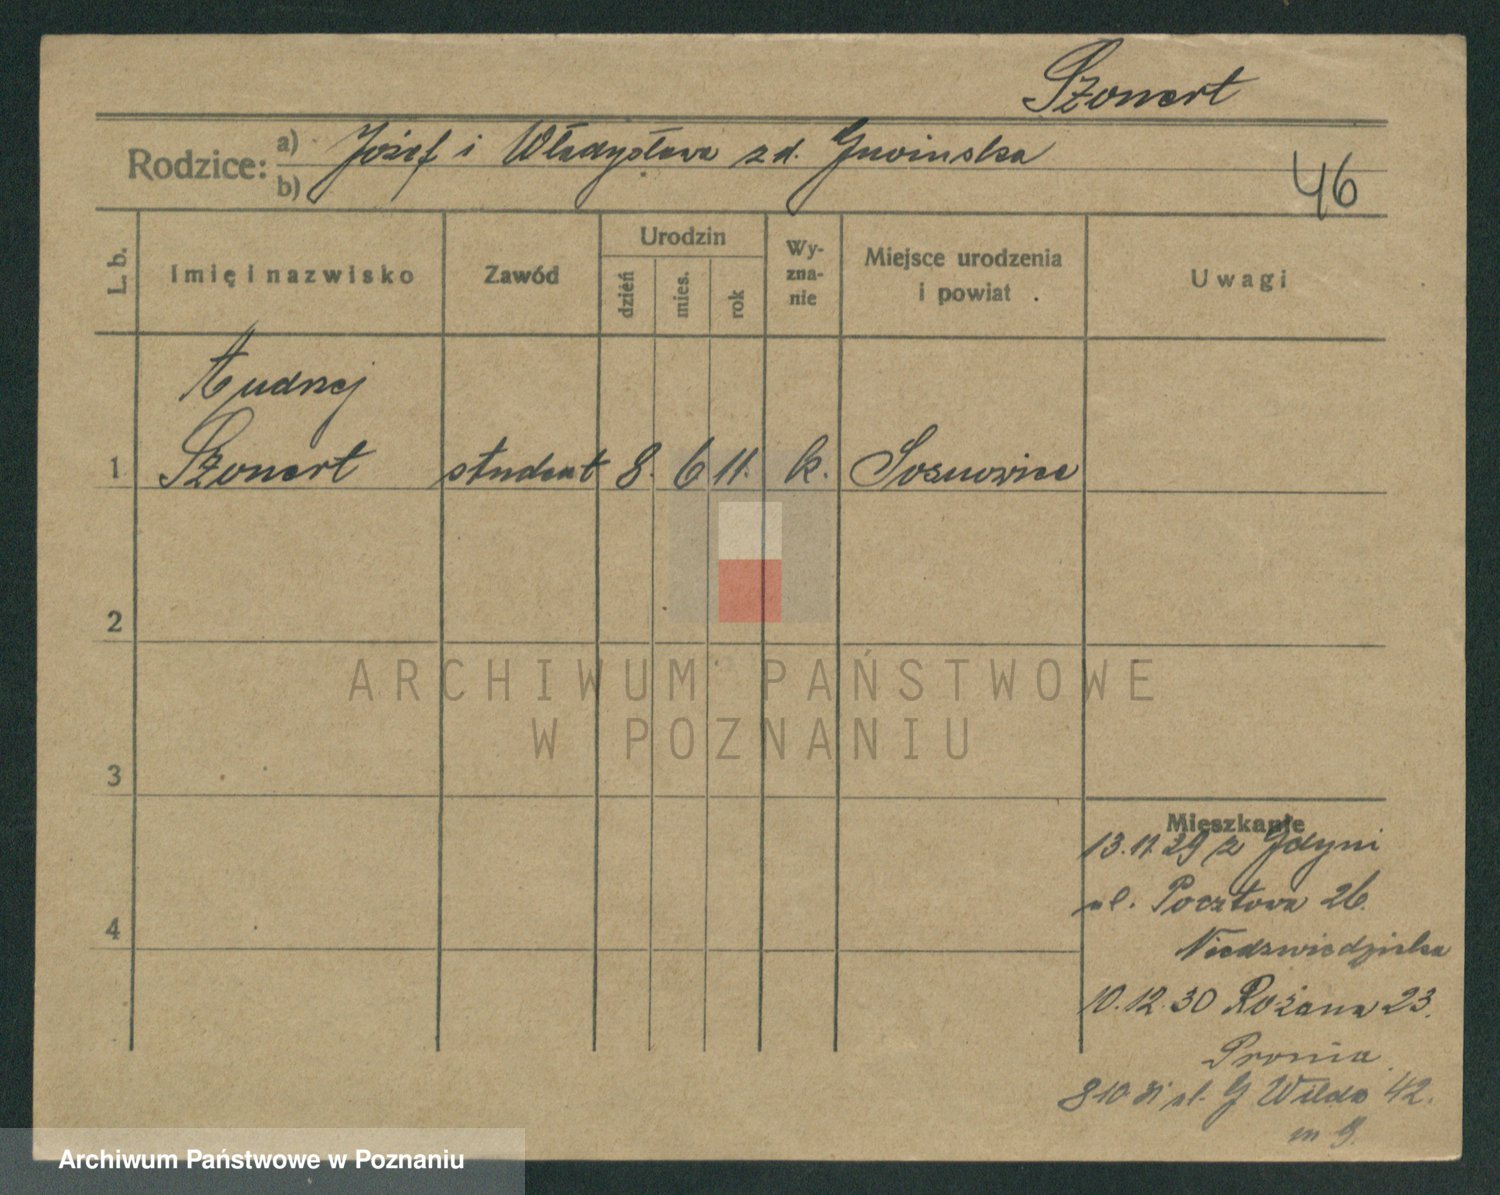 Szonert
Rodzice: a) Józef i Władysława zd. Gwoinska
b)
46
L. b.
Imię i nazwisko
Zawód
Urodzin
dzień
mies.
rok
Wy-
zna-
nie
Miejsce urodzenia
i powiat
Uwagi
Andrzej
1 Szonert student 8. 6 11. k. Sosnowice
2
3
4
ARCHIWUM PAŃSTWOWE
W POZNANIU
Mieszkanie
13.11.29 z Gdyni
ul. Pocztowa 26
Niedzwiedzielska
10.12.30 Różana 23.
Pronia
8 10 31 ul. G Wilda 42.
m 9.
Archiwum Państwowe w Poznaniu